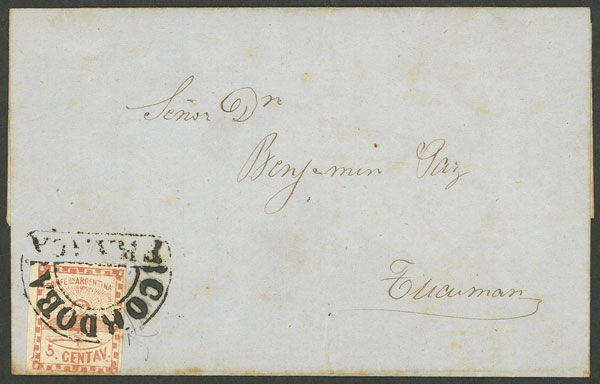 Señor Dn
Benjamin Paz
Tucuman
FRANCA
CORDOBA
CONFEDon ARGENTINA
5. CENTAV.